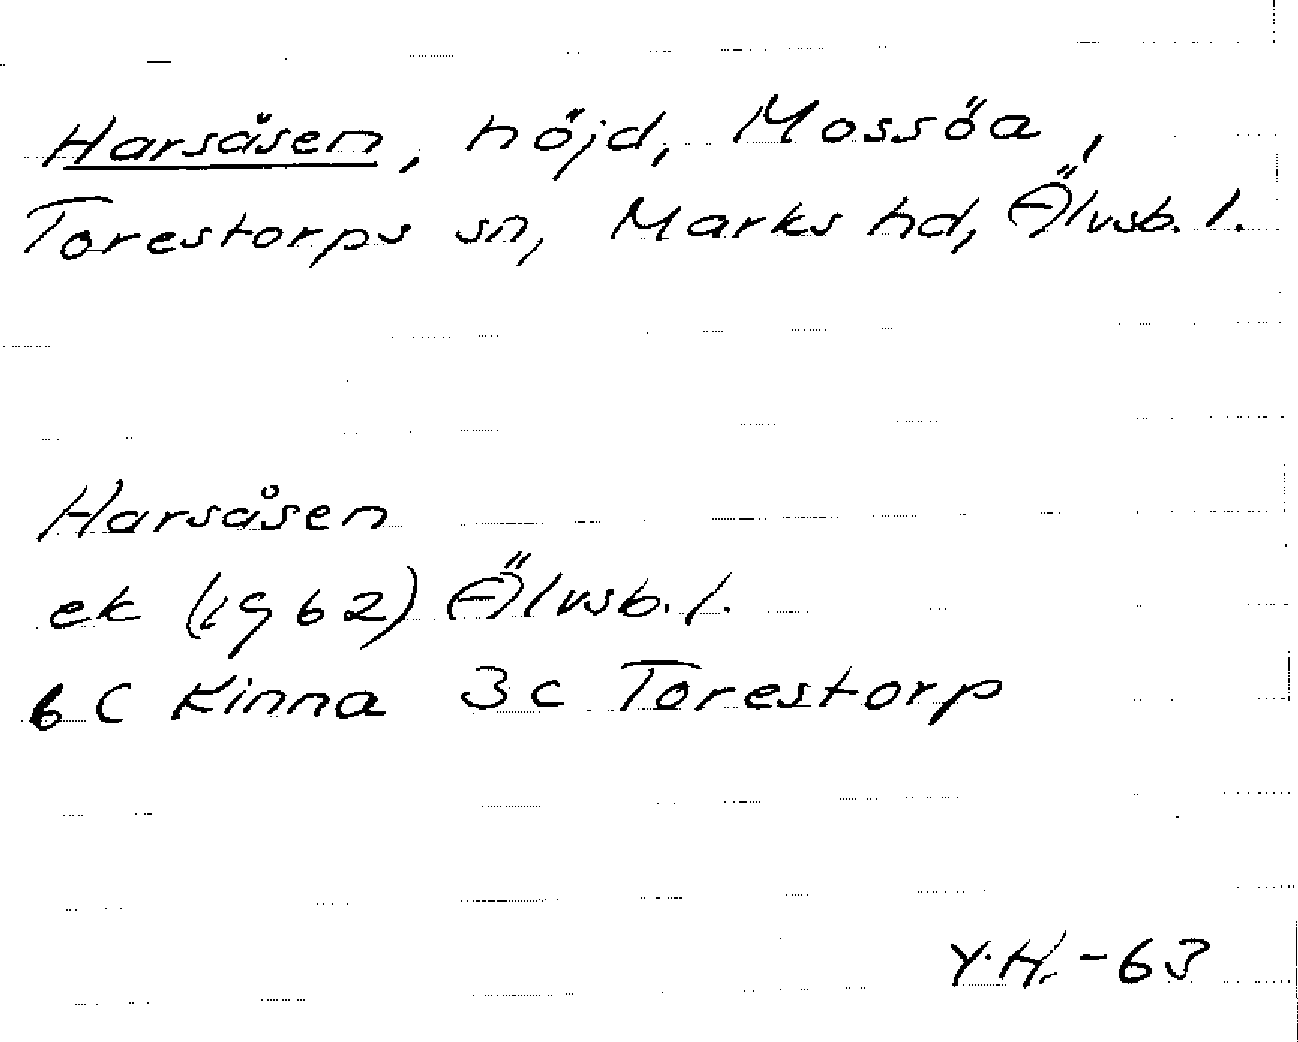 Harsåsen, höjd, Mossöa,
Torestorps sn, Marks hd, Älvsb. l.
Harsåsen
ek (1962) Älvsb. l.
6 C Kinna 3 c Torestorp
Y.H. - 63